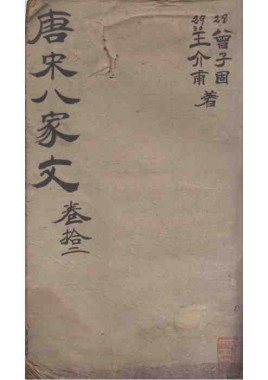 唐宋八家文
卷拾二
曾子固
王介甫著